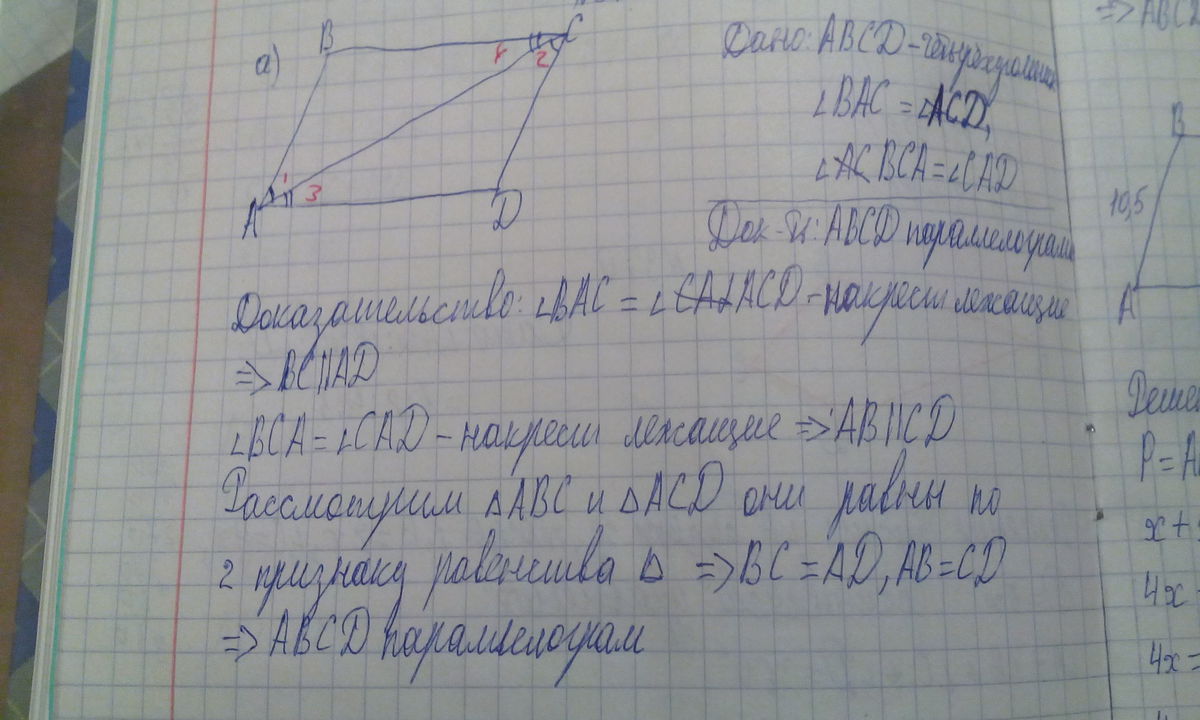 а)
B
C
4
2
1
3
A
D
Дано: ABCD – четырёхугольник
∠BAC = ∠ACD,
∠BCA = ∠CAD
Док-ть: ABCD параллелограмм
Доказательство: ∠BAC = ∠ACD – накрест лежащие
=> BC||AD
∠BCA = ∠CAD – накрест лежащие => AB||CD
Рассмотрим △ABC и △ACD они равны по
2 признаку равенства △ => BC = AD, AB = CD
=> ABCD параллелограм
B
10,5
A
P = A
x +
4x
4x =